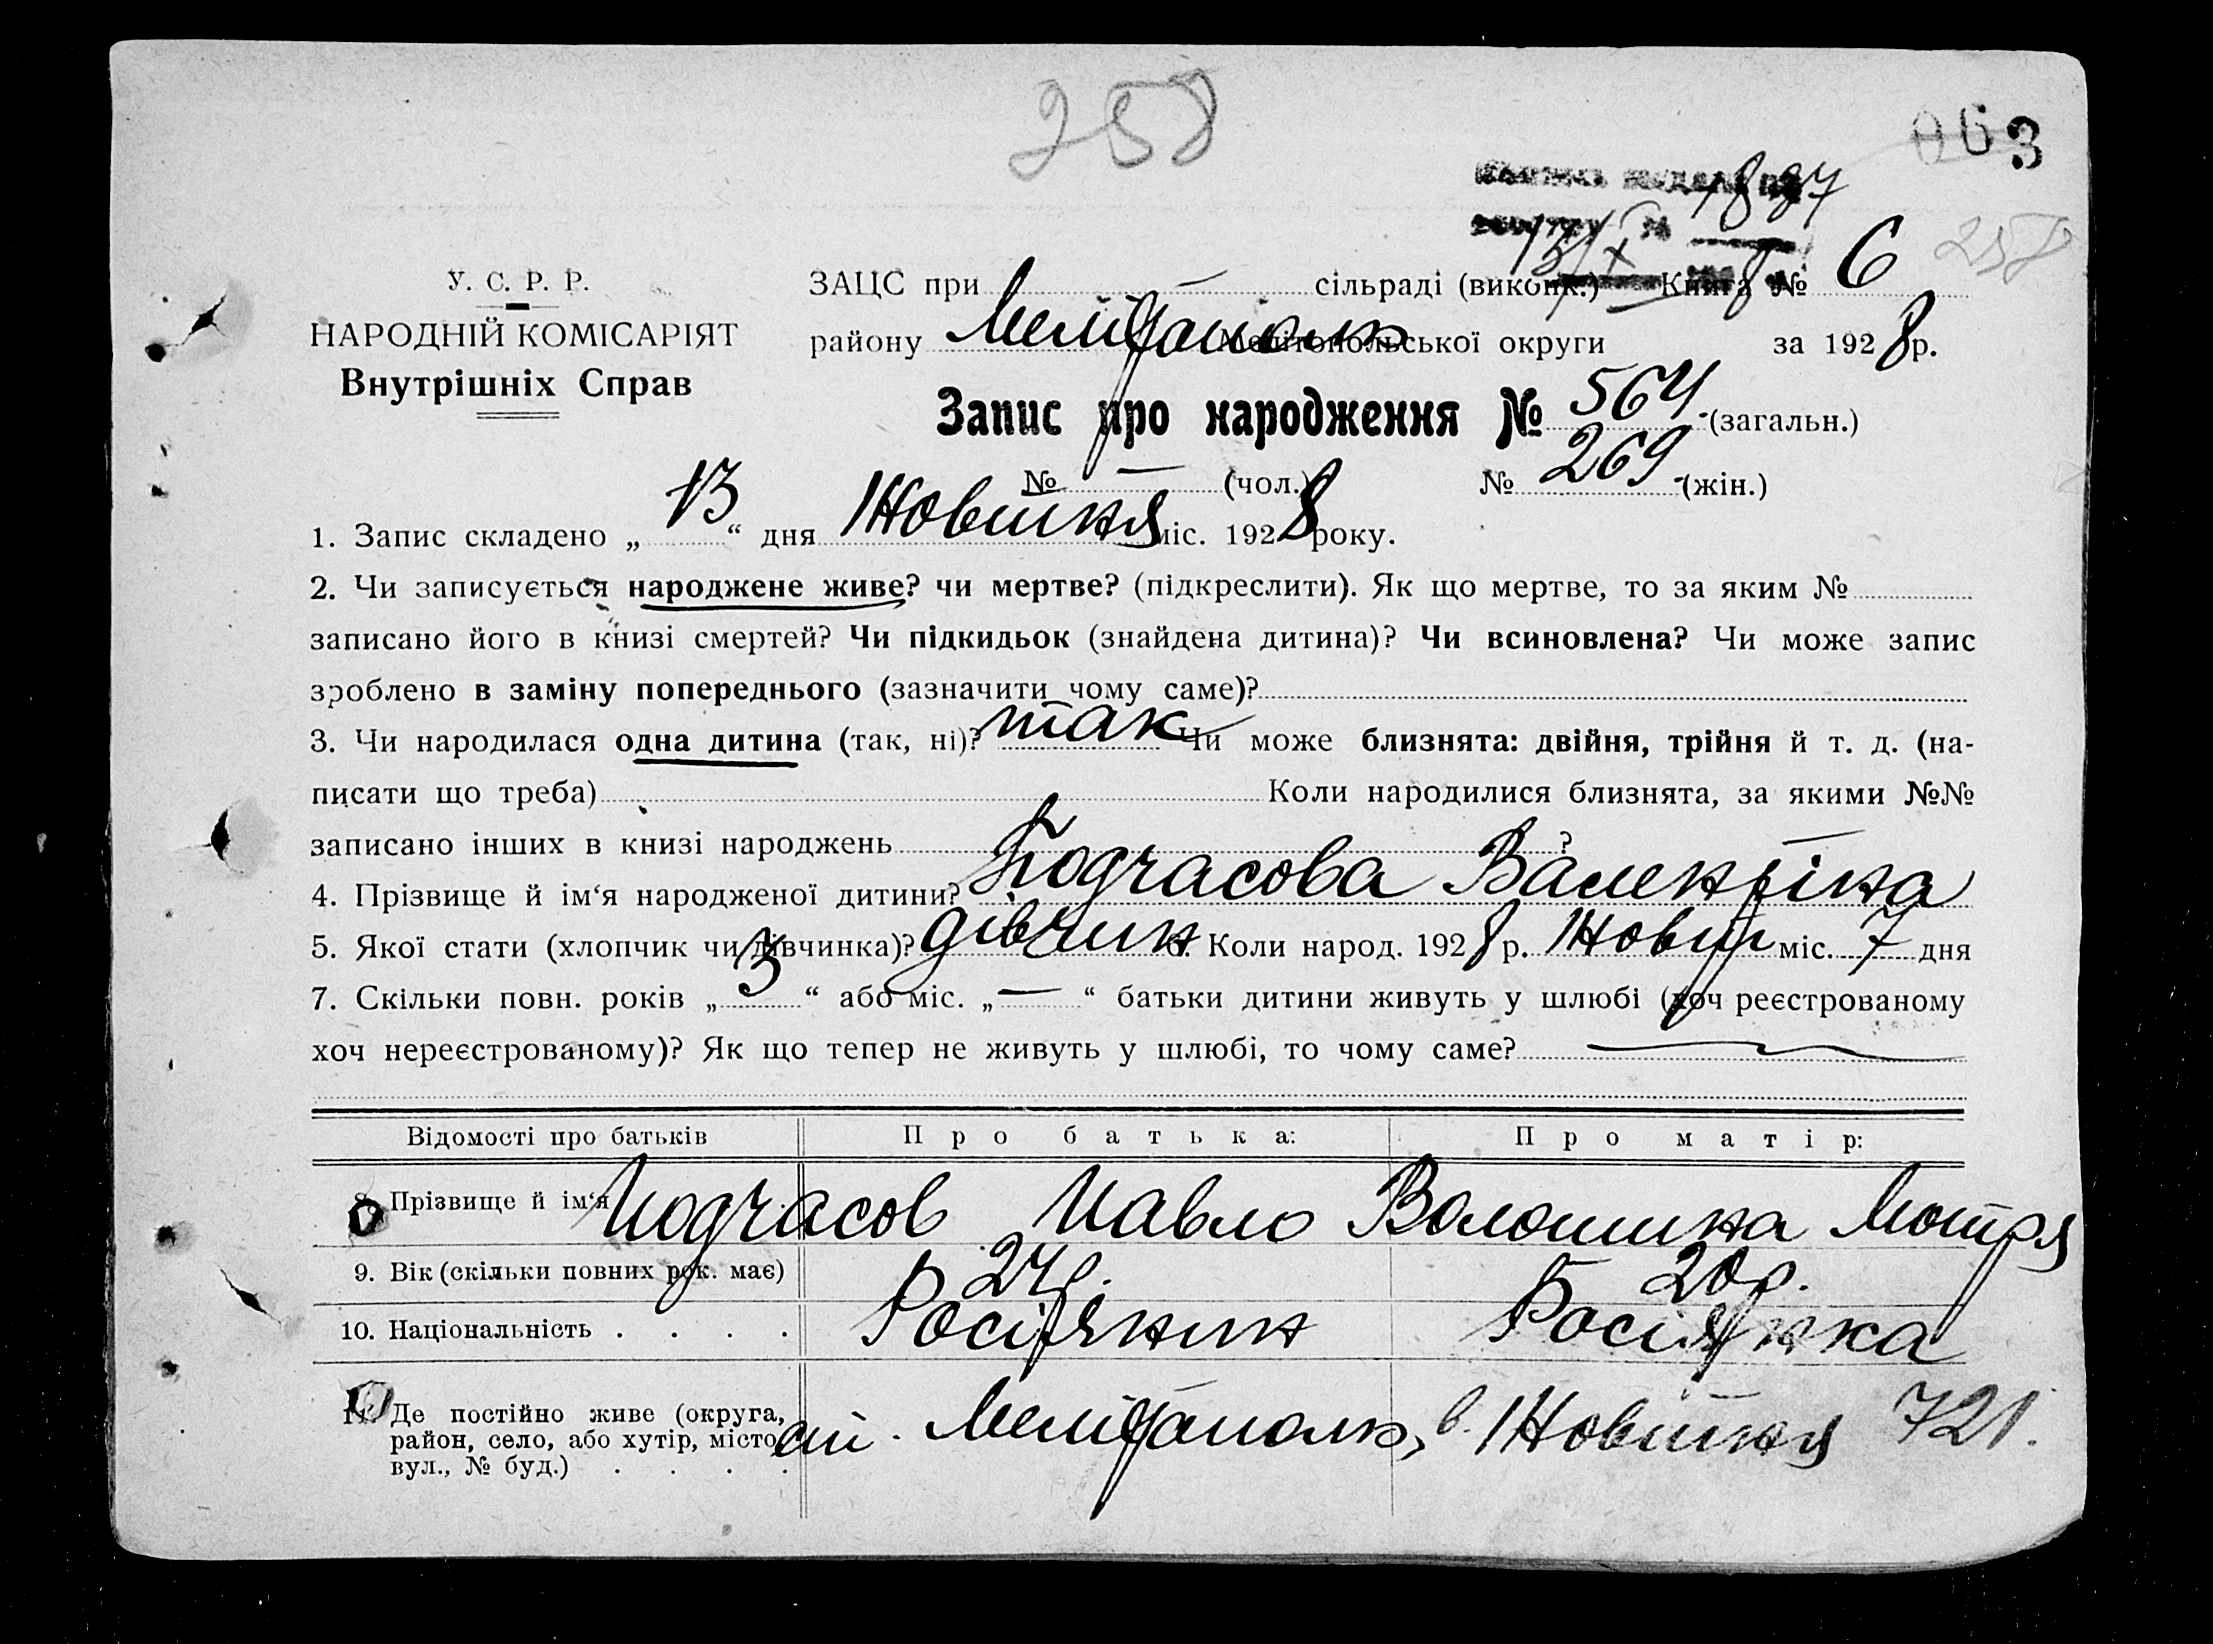 258
063
1887
258
У. С. Р. Р.
НАРОДНІЙ КОМІСАРІЯТ
Внутрішніх Справ
ЗАЦС при сільраді (виконк.) Книга № 6
району Мелітополь Мелітопольської округи за 1928 р.
Запис про народження № 564 (загальн.)
№ — (чол.) № 269 (жін.)
1. Запис складено „13“ дня Жовтня міс. 1928 року.
2. Чи записується народжене живе? чи мертве? (підкреслити). Як що мертве, то за яким №
записано його в книзі смертей? Чи підкидьок (знайдена дитина)? Чи всиновлена? Чи може запис
зроблено в заміну попереднього (зазначити чому саме)?
3. Чи народилася одна дитина (так, ні)? так Чи може близнята: двійня, трійня й т. д. (на-
писати що треба) Коли народилися близнята, за якими №№
записано інших в книзі народжень ?
4. Прізвище й ім‘я народженої дитини? Подчасова Валентіна
5. Якої стати (хлопчик чи дівчинка)? дівчин 6. Коли народ. 1928 р. Жовт міс. 7 дня
7. Скільки повн. років „3“ або міс. „—“ батьки дитини живуть у шлюбі (хоч реєстрованому
хоч нереєстрованому)? Як що тепер не живуть у шлюбі, то чому саме?
Відомості про батьків Про батька: Про матір:
8. Прізвище й ім‘я Подчасов Павло Волошина Мотря
9. Вік (скільки повних рок. має) 24 р. 20 р.
10. Національність . . . . Росіянин Росіянка
11. Де постійно живе (округа, район, село, або хутір, місто, вул., № буд.) . . . . ст. Мелітополь, в. Жовтня 721.